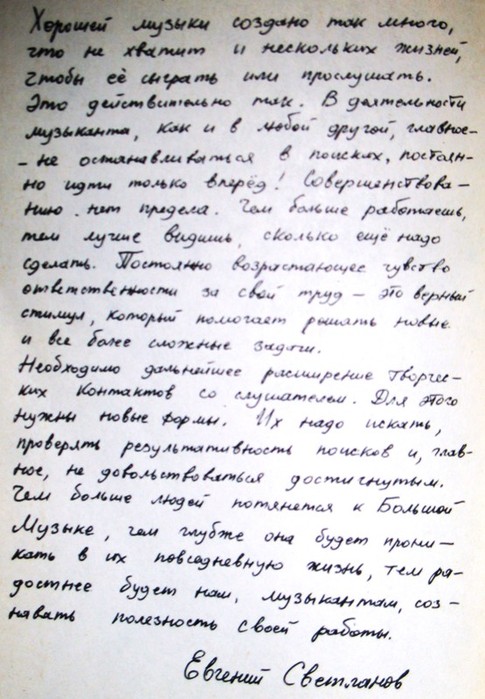 Хорошей музыки создано так много,
что не хватит и нескольких жизней,
чтобы её сыграть или прослушать.
Это действительно так. В деятельности
музыканта, как и в любой другой, главное-
- не останавливаться в поисках, постоян-
но идти только вперёд! Совершенствова-
нию нет предела. Чем больше работаешь,
тем лучше видишь, сколько ещё надо
сделать. Постоянно возрастающее чувство
ответственности за свой труд - это верный
стимул, который помогает решать новые
и все более сложные задачи.
Необходимо дальнейшее расширение творчес-
ких контактов со слушателем. Для этого
нужны новые формы. Их надо искать,
проверять результативность поисков и, глав-
ное, не довольствоваться достигнутым.
Чем больше людей потянется к Большой
Музыке, чем глубже она будет прони-
кать в их повседневную жизнь, тем ра-
достнее будет нам, музыкантам, соз-
навать полезность своей работы.
Евгений Светланов